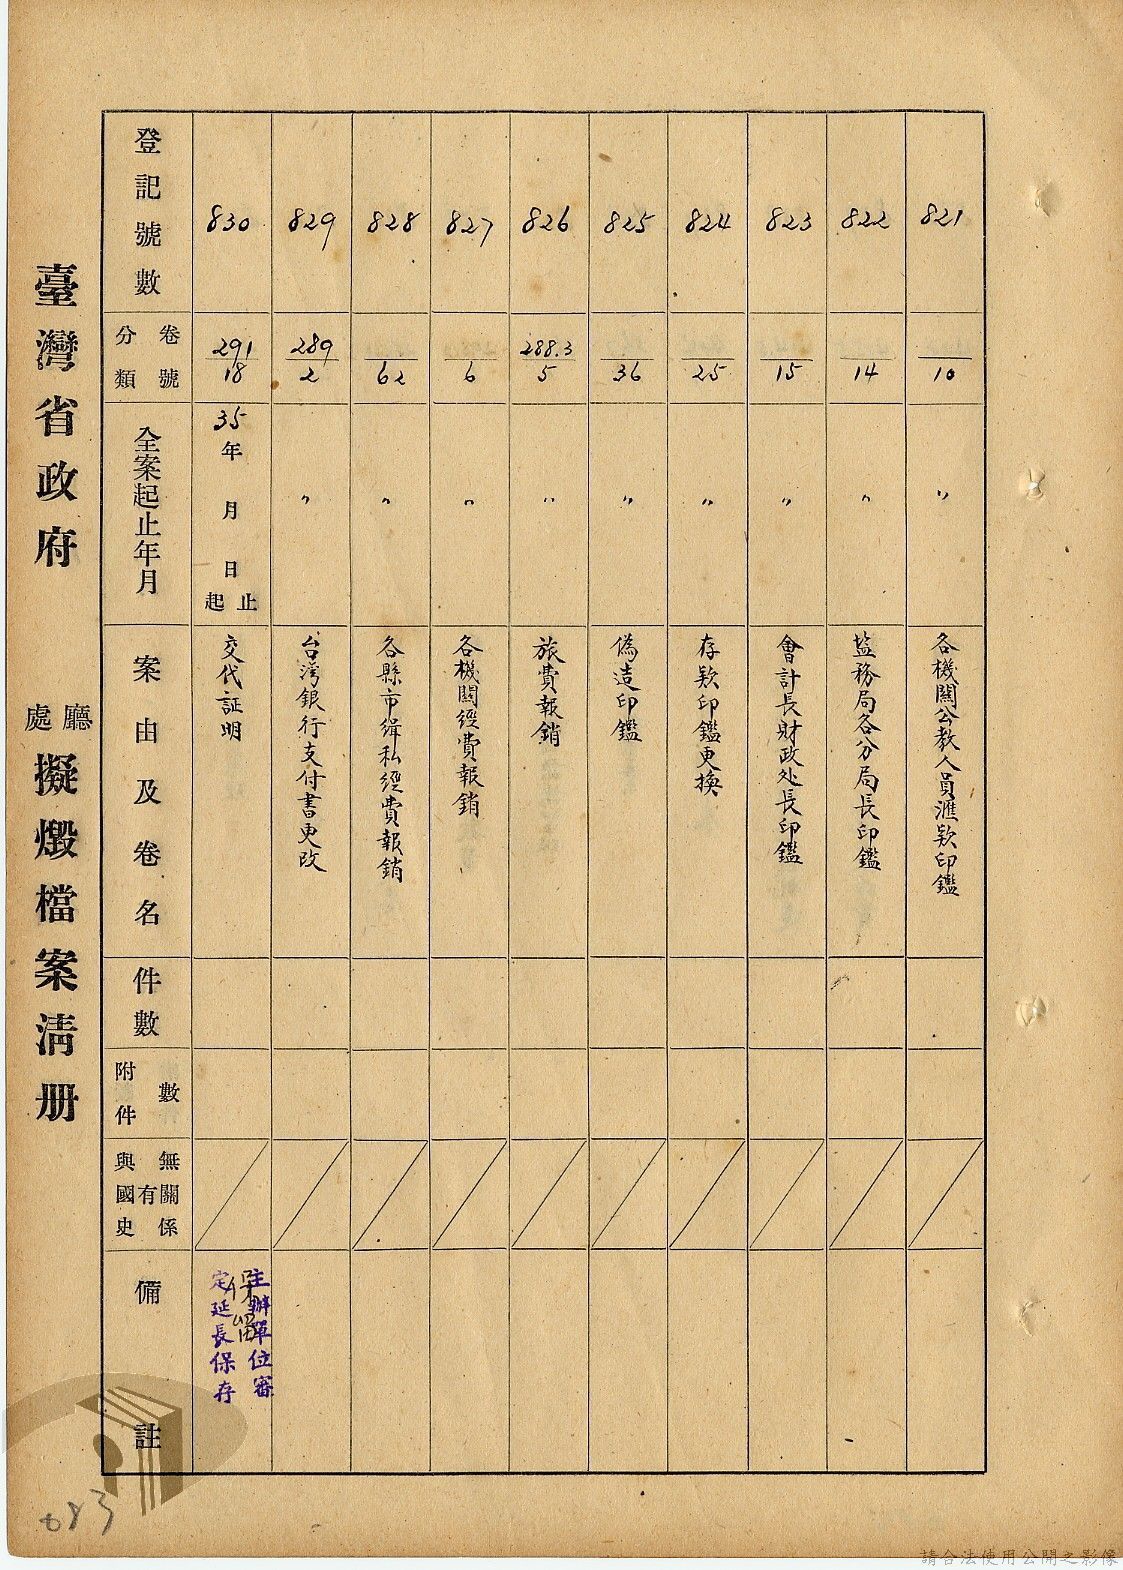 臺灣省政府 處廳 擬燬檔案清册
登記號數
分類卷號
全案起止年月
案由及卷名
件數
附件數
與國史有無關係
備註
821
10
〃
各機關公教人員滙欵印鑑
822
14
〃
盐務局各分局長印鑑
823
15
〃
會計長財政处長印鑑
824
25
〃
存欵印鑑更換
825
36
〃
偽造印鑑
826
288.3
5
〃
旅費報銷
827
6
〃
各機關經費報銷
828
62
〃
各縣市緝私經費報銷
829
289
2
〃
台灣銀行支付書更改
830
291
18
35年月日起止
交代証明
主辦單位審
定延長保存
保留
083
請合法使用公開之影像